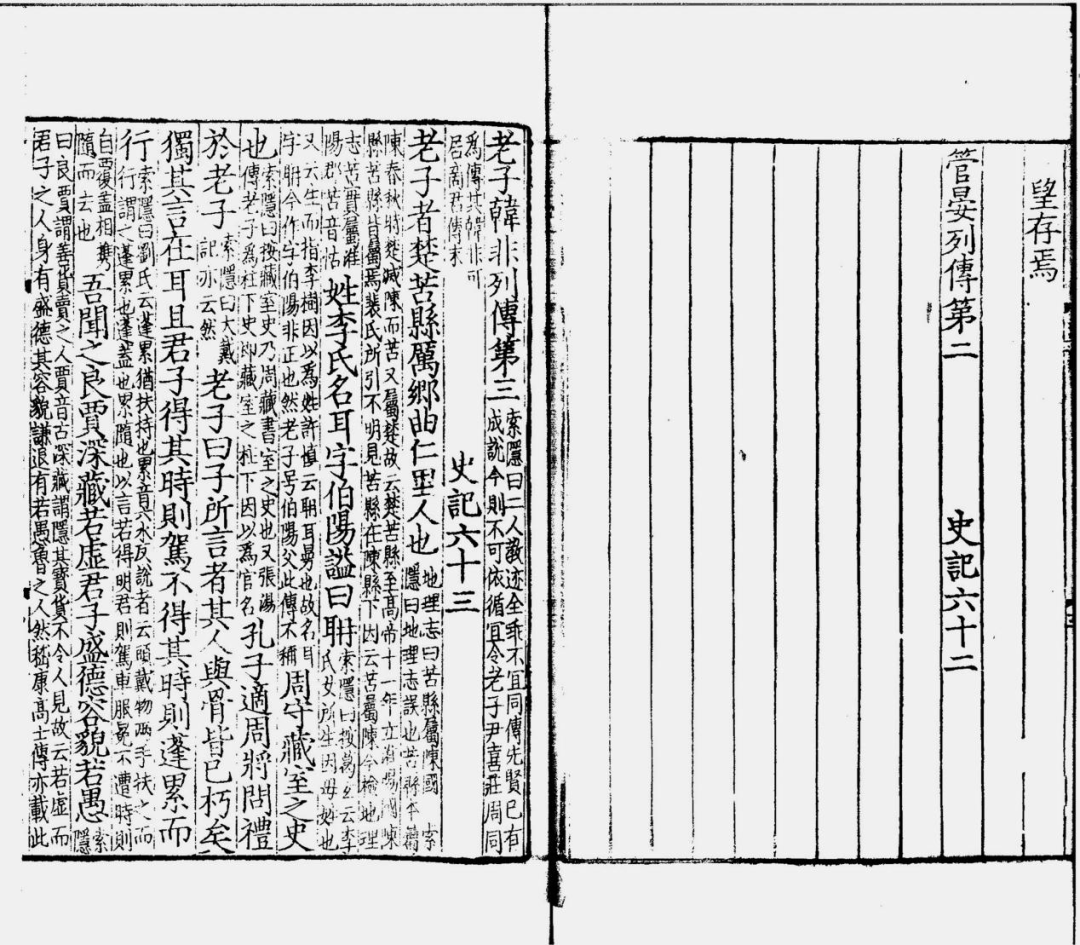 望存焉
管晏列傳第二 史記六十二
老子韓非列傳第三 索隱曰二人教迹全乖不宜同傳先賢已有
成說今則不可依循宜令老子尹喜莊周同
爲傳其韓非可
居商君傳末
史記六十三
老子者楚苦縣厲鄉曲仁里人也 地理志曰苦縣屬陳國 索
隱曰地理志誤也苦縣本屬
陳春秋時楚滅陳而苦又屬楚故云楚苦縣至高帝十一年立淮陽國陳
縣苦縣皆屬焉裴氏所引不明見苦縣在陳縣下因云苦屬陳今檢地理
志苦實屬淮
陽郡苦音怙
姓李氏名耳字伯陽謚曰耼 索隱曰按葛玄云李
氏女所生因母姓也
又云生而指李樹因以爲姓許慎云耼耳曼也故名耳
字耼今作字伯陽非正也然老子号伯陽父此傳不稱
周守藏室之史
也 索隱曰按藏室史乃周藏書室之史也又張湯
傳老子爲柱下史即藏室之柱下因以爲官名
孔子適周將問禮
於老子 索隱曰大戴
記亦云然
老子曰子所言者其人與骨皆已朽矣
獨其言在耳且君子得其時則駕不得其時則蓬累而
行 索隱曰劉氏云蓬累猶扶持也累音六水反說者云頭戴物兩手扶之而
行謂之蓬累也蓬蓋也累隨也以言若得明君則駕車服冕不遭時則
自覆蓋相攜
隨而去也
吾聞之良賈深藏若虛君子盛德容貌若愚 索
隱
曰良賈謂善貨賣之人賈音古深藏謂隱其寶貨不令人見故云若虛而
君子之人身有盛德其容貌謙退有若愚魯之人然嵇康高士傳亦載此